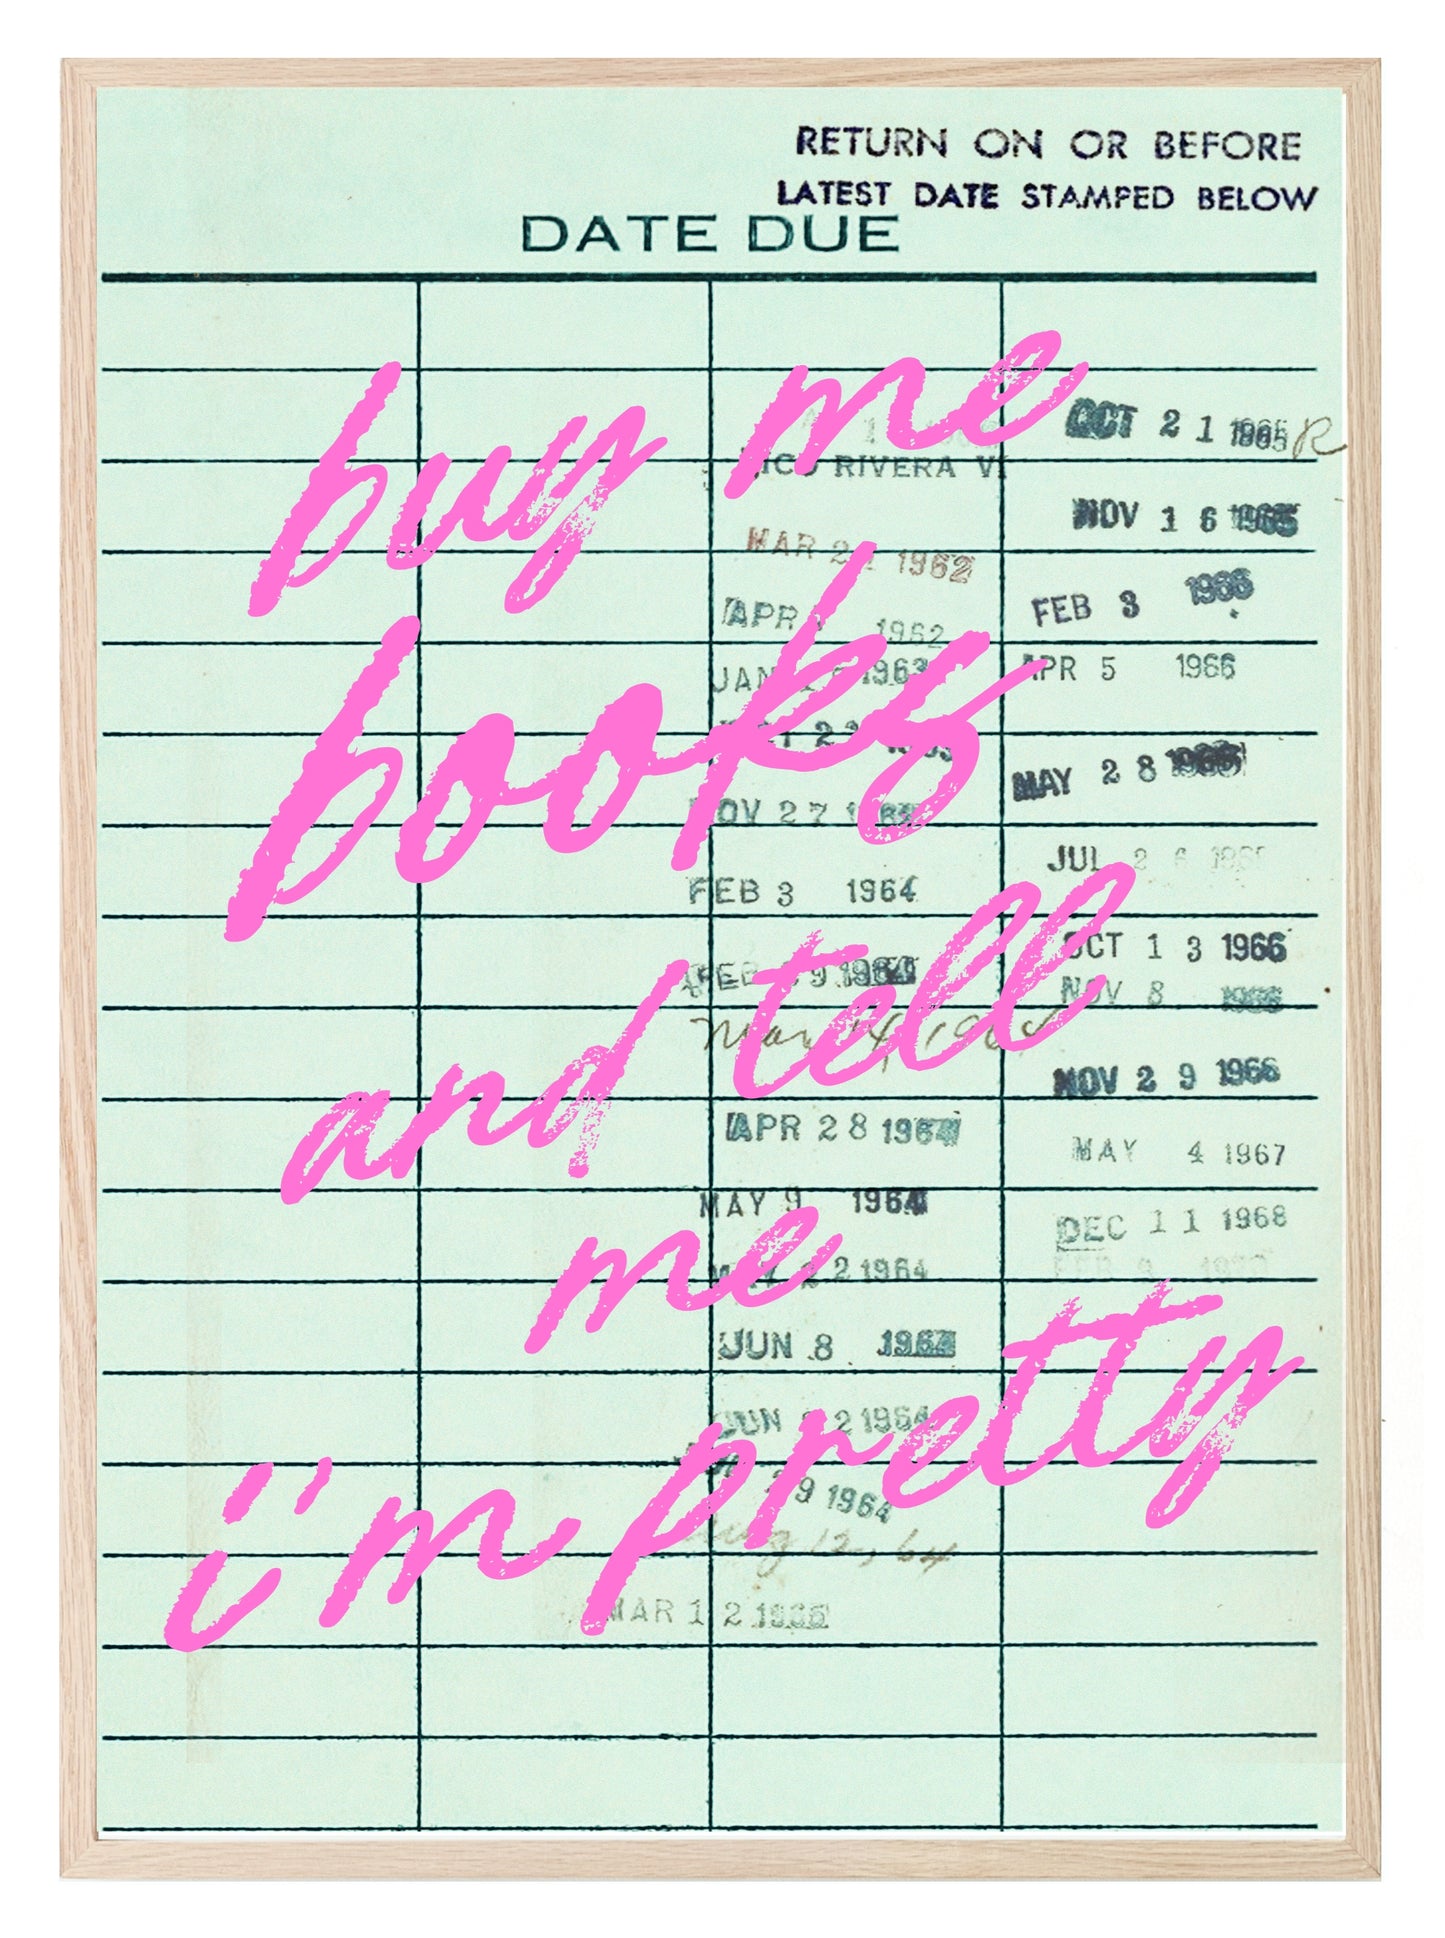 RETURN ON OR BEFORE
LATEST DATE STAMPED BELOW
DATE DUE
buy me
books
and tell
me
i'm pretty
RIVERA
MAR 1962
APR 1962
JAN 1963
NOV 27
FEB 3 1964
FEB 9 1964
Mar 196
APR 28 1964
MAY 9 1964
MAY 2 1964
JUN 8 1964
JUN 2 1964
29 1964
Aug 12, 64
MAR 12
OCT 21 1965 R
NOV 16 1965
FEB 3 1966
APR 5 1966
MAY 28 1966
JUL 26
OCT 13 1966
NOV 8 1966
NOV 29 1966
MAY 4 1967
DEC 11 1968
FEB 9